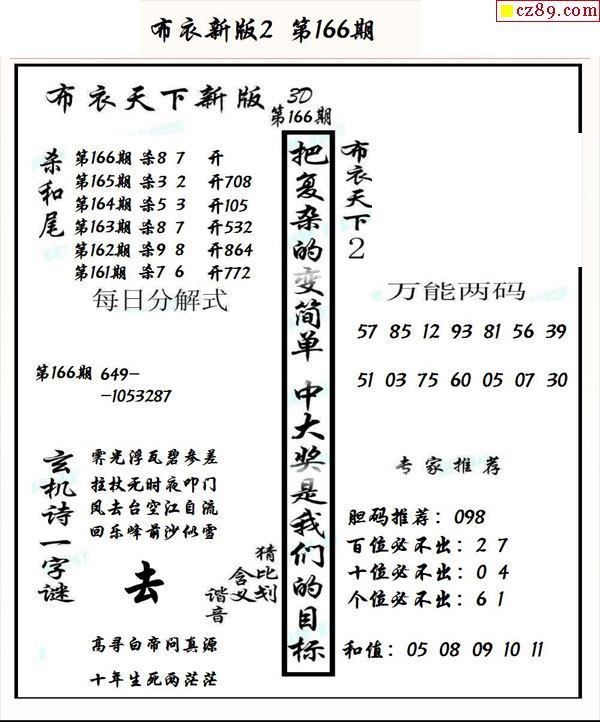 cz89.com
布衣新版2 第166期
布衣天下新版
3D
第166期
杀和尾
第166期 杀8 7 开
第165期 杀3 2 开708
第164期 杀5 3 开105
第163期 杀8 7 开532
第162期 杀9 8 开864
第161期 杀7 6 开772
每日分解式
第166期 649-
-1053287
玄机诗一字谜
霁光浮瓦碧参差
拄杖无时夜叩门
风去台空江自流
回乐峰前沙似雪
去
猜比划
含义
谐音
高寻白帝问真源
十年生死两茫茫
把复杂的变简单 中大奖是我们的目标
布衣天下2
万能两码
57 85 12 93 81 56 39
51 03 75 60 05 07 30
专家推荐
胆码推荐：098
百位必不出：2 7
十位必不出：0 4
个位必不出：6 1
和值：05 08 09 10 11